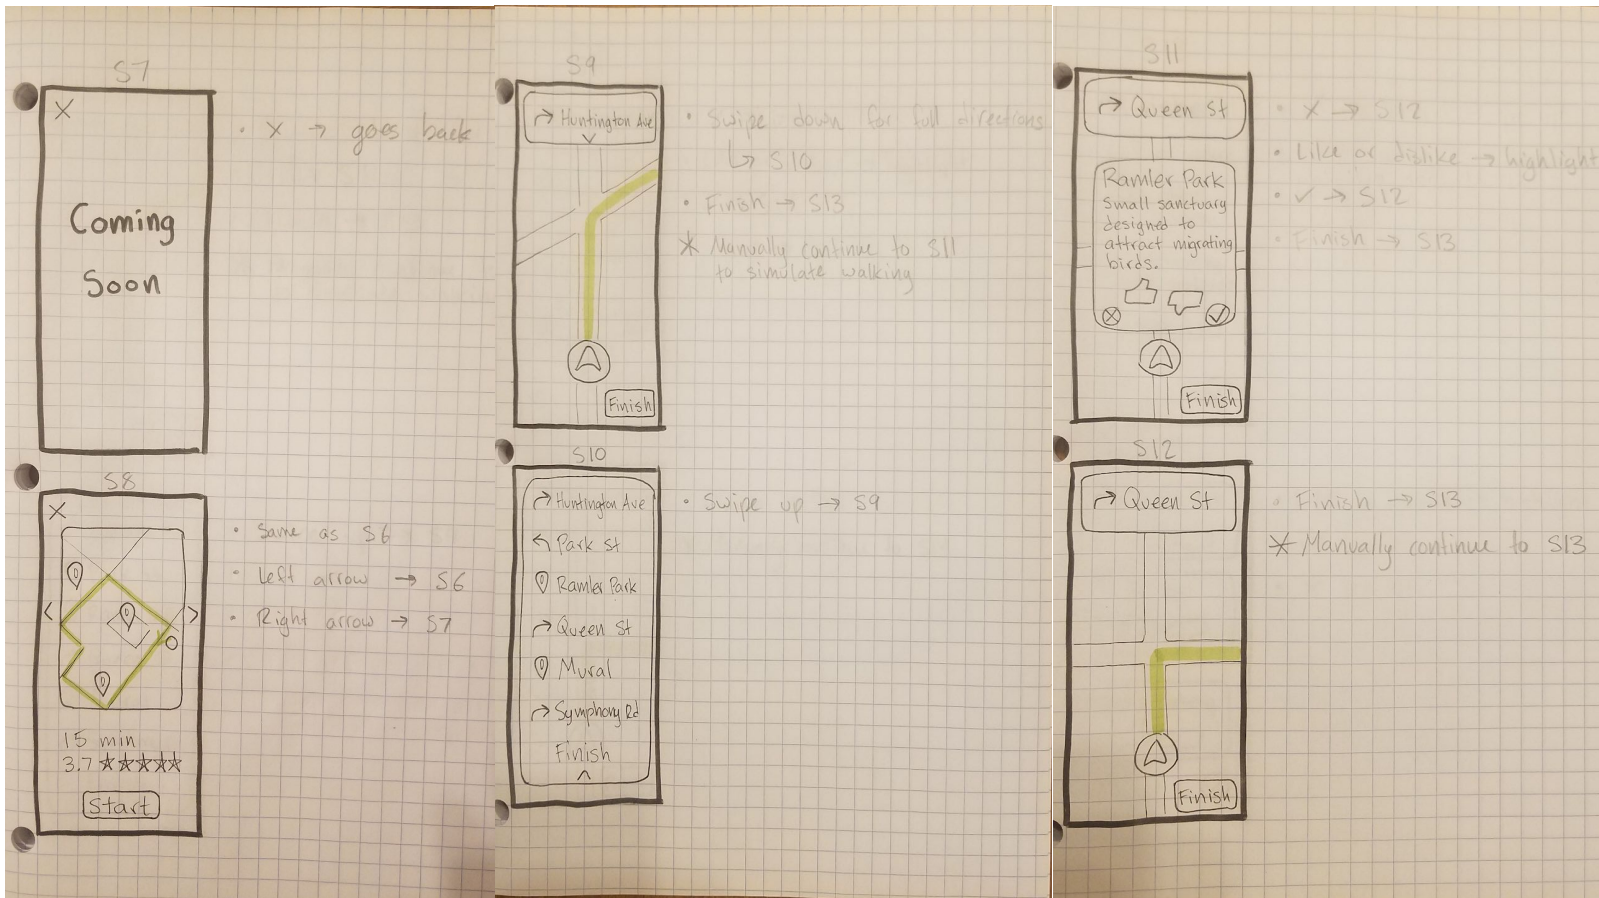 S7
X
Coming
Soon
• X → goes back
S8
X
< >
15 min
3.7 ★★★★★
Start
• Same as S6
• Left arrow → S6
• Right arrow → S7
S9
Huntington Ave
Finish
• Swipe down for full directions
↳ S10
• Finish → S13
* Manually continue to S11
to simulate walking
S10
Huntington Ave
Park St
Ramler Park
Queen St
Mural
Symphony Rd
Finish
• Swipe up → S9
S11
Queen St
Ramler Park
Small sanctuary
designed to
attract migrating
birds.
Finish
• X → S12
• Like or dislike → highlight
• ✓ → S12
• Finish → S13
S12
Queen St
Finish
• Finish → S13
* Manually continue to S13